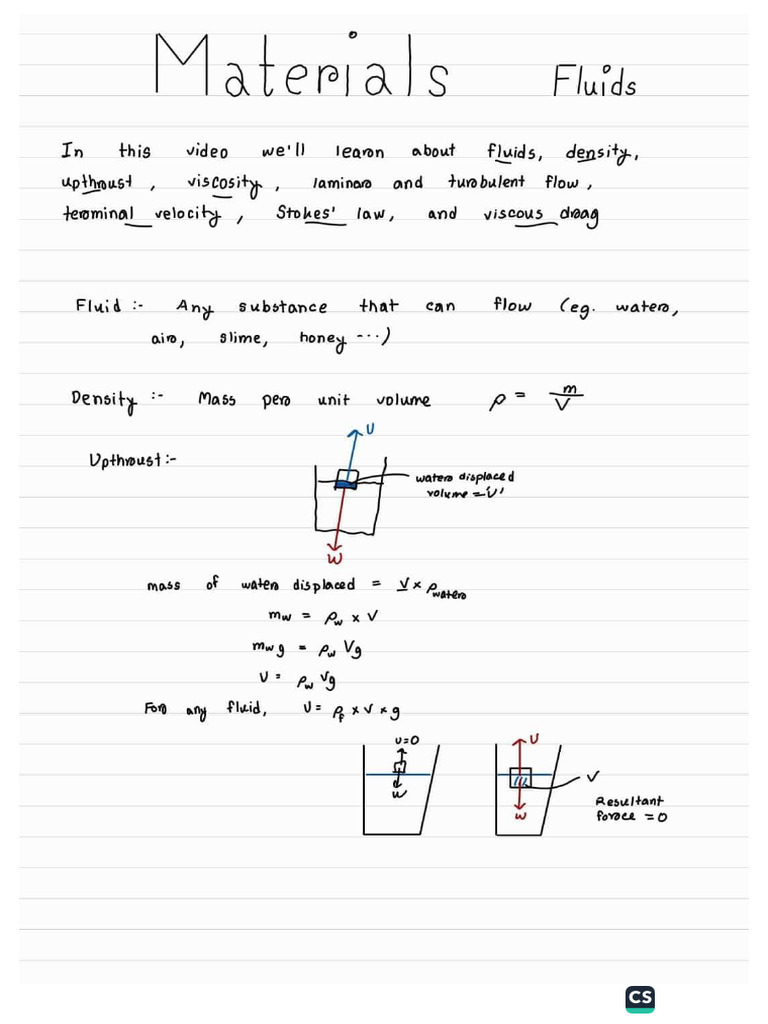 Materials Fluids
In this video we'll learn about fluids, density,
upthrust, viscosity, laminar and turbulent flow,
terminal velocity, Stokes' law, and viscous drag
Fluid :- Any substance that can flow (eg. water,
air, slime, honey ...)
Density :- Mass per unit volume ρ = m/V
U
Upthrust :-
water displaced
volume = 'V'
W
mass of water displaced = V × ρwater
mw = ρw × V
mwg = ρw Vg
U = ρw Vg
For any fluid, U = ρf × V × g
U=0
W
U
V
W
Resultant
force = 0
CS